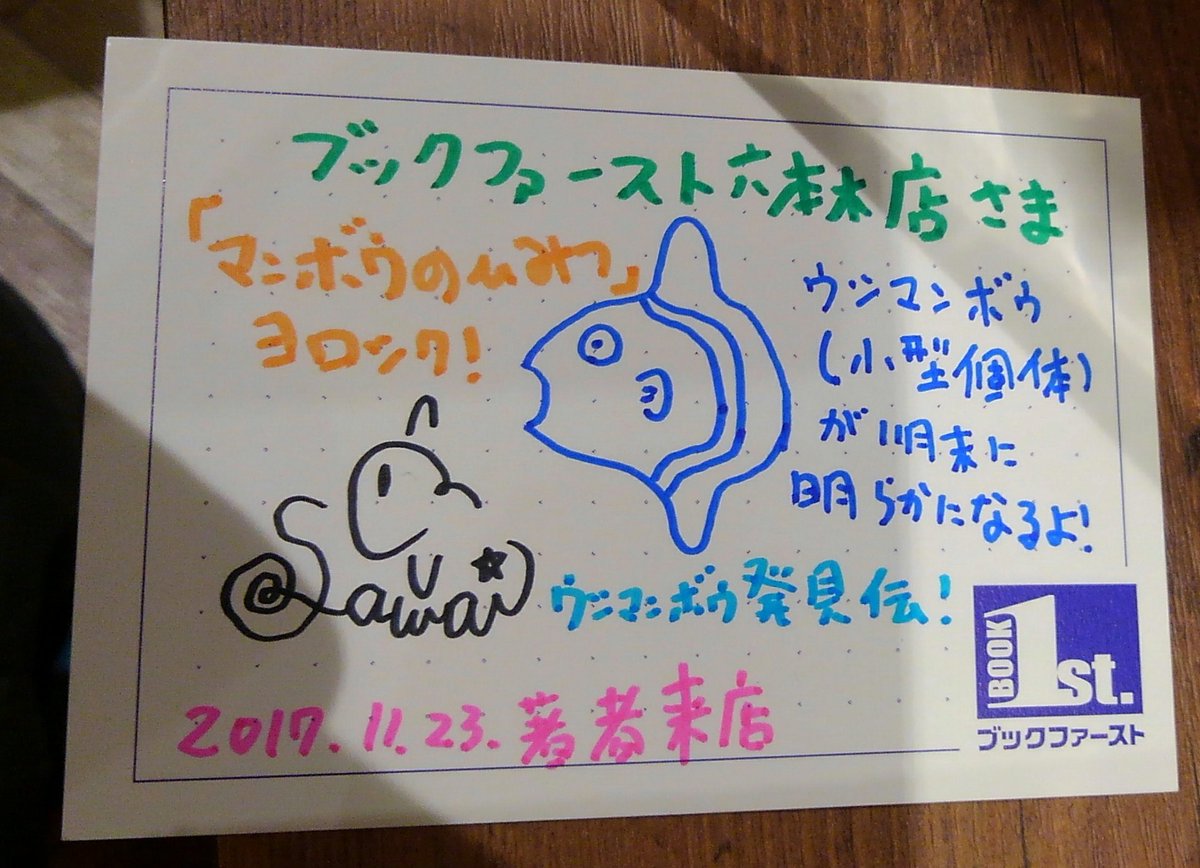 ブックファースト六本木店さま
「マンボウのひみつ」
ヨロシク!
ウシマンボウ
(小型個体)
が11月末に
明らかになるよ!
Sawai
ウシマンボウ発見伝!
2017.11.23.著者来店
BOOK 1st.
ブックファースト